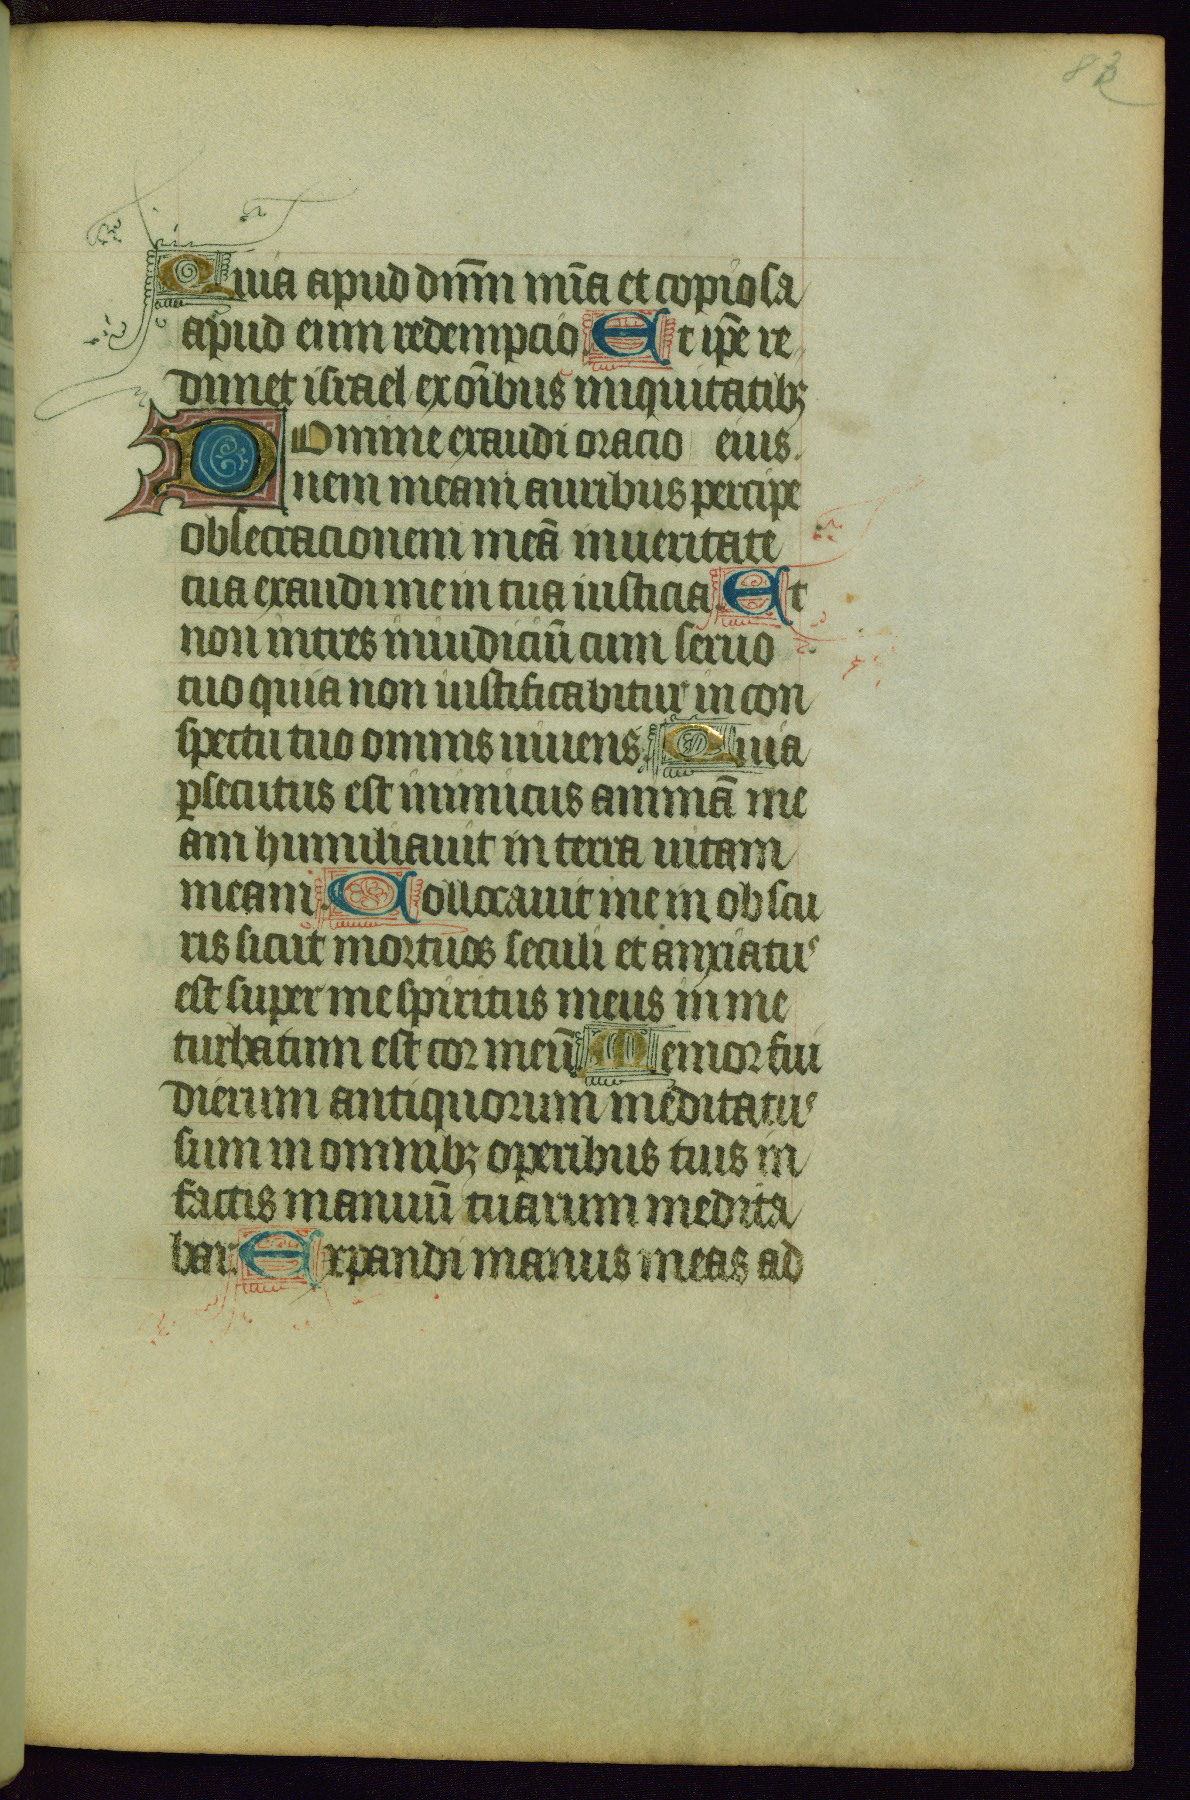 83
Quia apud dn̄m mīa et copiosa
apud eum redempcio Et ip̄e re
dimet israel ex om̄ibus iniquitatibꝫ
Domine exaudi oracio eius.
nem meam auribus percipe
obsecracionem meā in ueritate
tua exaudi me in tua iusticia. Et
non intres in iudiciū cum seruo
tuo quia non iustificabitur in con
spectu tuo omnis uiuens. Quia
ꝑsecutus est inimicus animā me
am humiliauit in terra uitam
meam. Collocauit me in obscu
ris sicut mortuos seculi et anxiatuˢ
est super me spiritus meus in me
turbatum est cor meū Memor fui
dierum antiquorum meditatuˢ
sum in omnibꝫ operibus tuis in
factis manuū tuarum medita
bar. Expandi manus meas ad